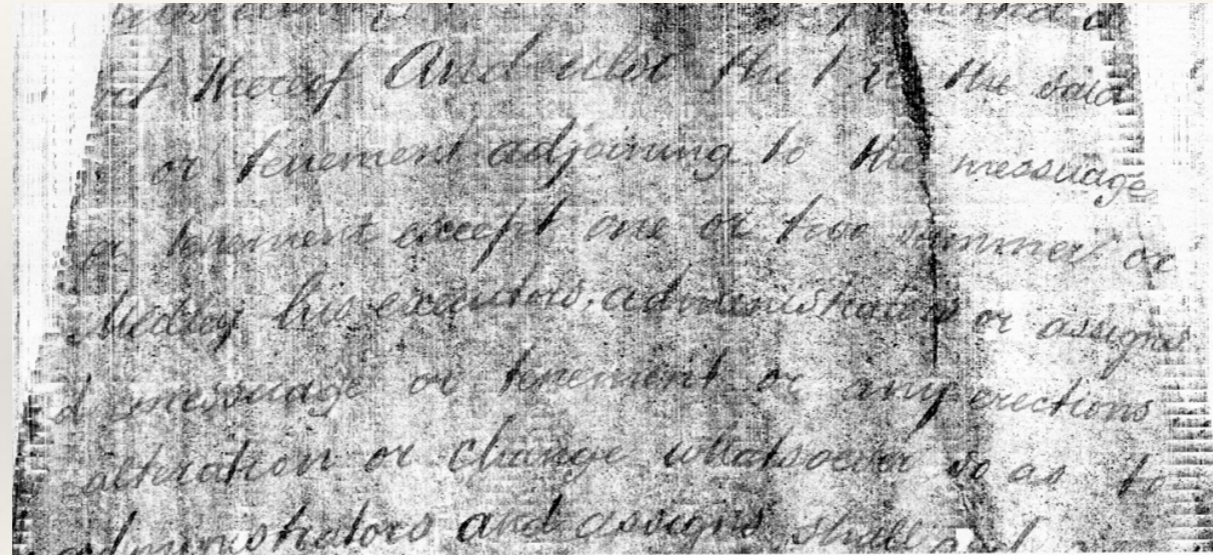 thereof And also the said
or tenement adjoining to the messuage
or tenement except one or two summer or
his executors, administrators or assigns
messuage or tenement or any erections
alteration or change whatsoever so as to
administrators and assigns shall